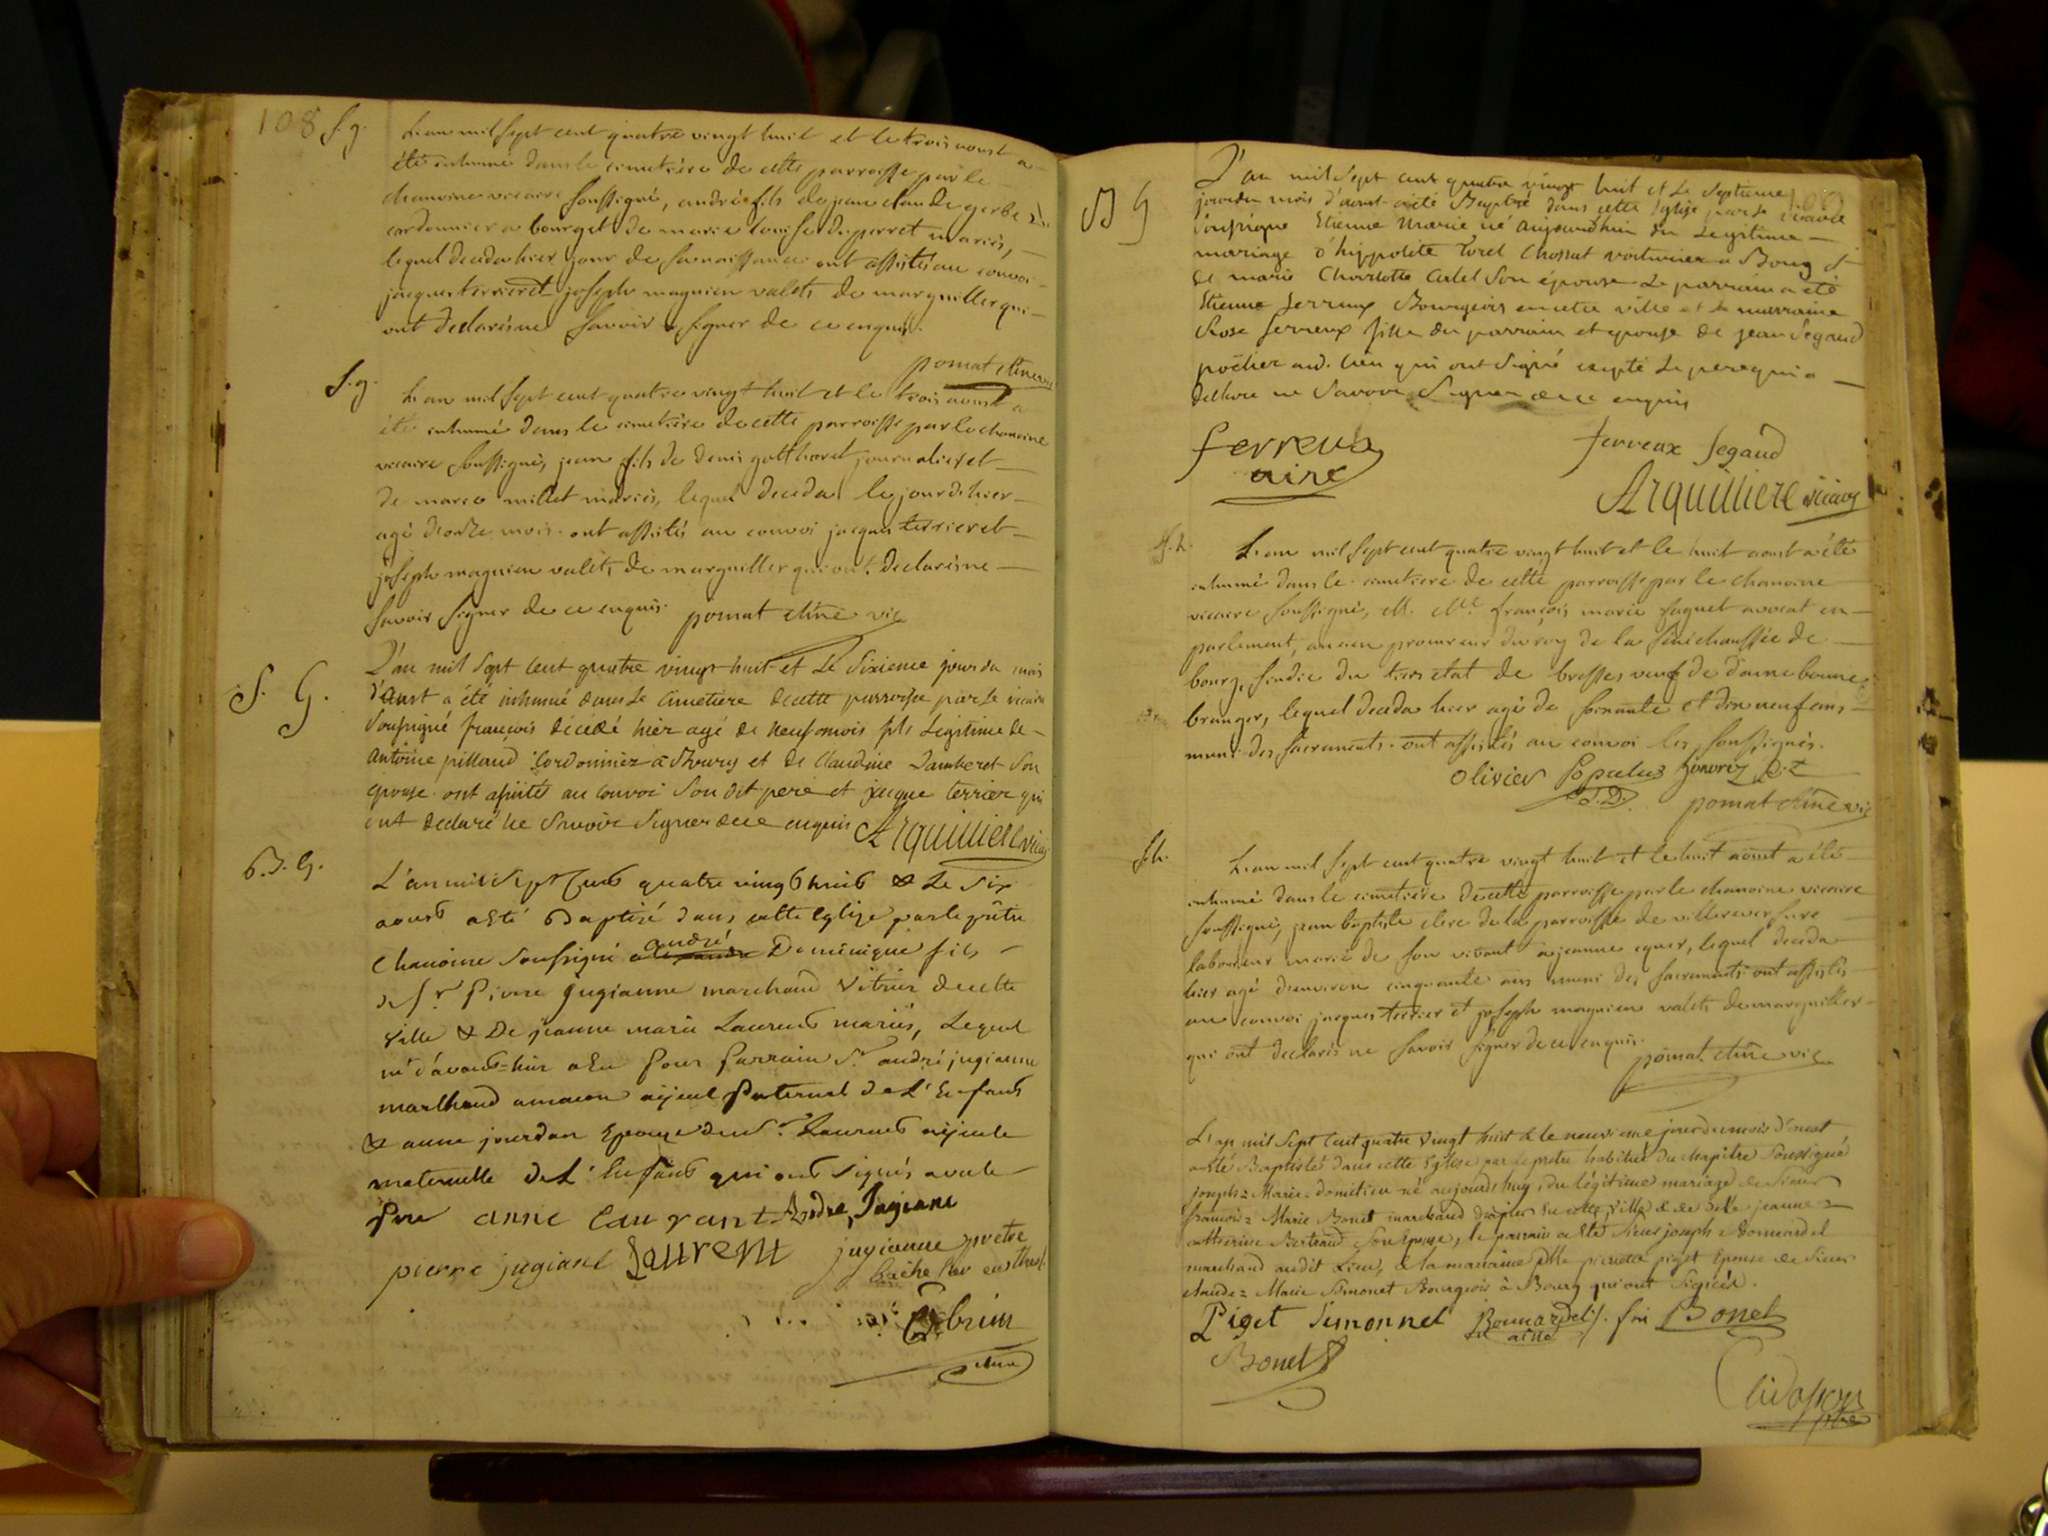 108 S. g. L'an mil sept cent quatre vingt huit et le trois aoust a
été inhumé dans le cimetière de cette parroisse par le
chanoine vicaire soussigné, andré fils de jean claude gerbe
cordonnier a bourg et de marie louise duperret mariés,
lequel deceda hier jour de sa naissance ont assistés au convoi
jacques terrier et joseph magnien valets de marguiller qui
ont declarés ne savoir signer de ce enquis.
pomat chne vic
S. g. L'an mil sept cent quatre vingt huit et le trois aoust a
été inhumé dans le cimetière de cette parroisse par le chanoine
vicaire soussigné, jean fils de denis journalier et
de marie millet mariés, lequel deceda le jour d'hier
agé d'onze mois. ont assistés au convoi jacques terrier et
joseph magnien valets de marguiller qui ont declarés ne
savoir signer de ce enquis. pomat chne vic
S. G. L'an mil sept cent quatre vingt huit et le sixieme jour du mois
d'aust a été inhumé dans le cimetiere de cette parroisse par le vicaire
soussigné françois décédé hier agé de neuf mois fils legitime de
antoine pillaud cordonnier a Bourg et de Claudine Lamberet son
epouse. ont assisté au convoi son dit pere et jacque terrier qui
ont declaré ne savoir signer de ce enquis Arquilliere vicaire
B. G. L'an mil sept cent quatre vingt huit & le six
aoust a été baptisé dans cette eglize par le prêtre
chanoine soussigné andré Dominique fils
de sr. pierre jugianne marchand vitrier de cette
ville & de jeanne marie Laurent mariés, lequel
né d'avant-hier a eu pour parrain sr. andré jugianne
marchand a macon aÿeul paternel de L'enfant
& anne jourdan epouze du sr. Laurent aÿeule
maternelle de L'enfant qui ont signés avec le
pere anne Laurant Andre, Jugiane
pierre jugiane Laurent jugianne pretre
Bache
Gobrim
chne
B G L'an mil sept cent quatre vingt huit et le septieme
jour du mois d'aoust a été Baptisé dans cette Eglise par le vicaire
soussigné Etienne Marie né aujourdhui du Legitime
mariage d'hippolite Torel Chossat voiturier a Bourg &
de marie Charlotte Calet son épouse Le parrain a été
Etienne Ferreux Bourgeois en cette ville et la marraine
Rose ferreux fille du parrain et epouse de jean Segaud
poëlier aud. lieu qui ont signé excepté Le pere qui a
declaré ne savoir signer de ce enquis
ferreux ferreux Segaud
aine Arquilliere vicaire
S. h. L'an mil sept cent quatre vingt huit et le huit aoust a été
inhumé dans le cimetiere de cette parroisse par le chanoine
vicaire soussigné, M. Me françois marie faguet avocat en
parlement, ancien procureur du roy de la sénéchaussée de
bourg, sindic du tiers etat de bresse, veuf de dame bonne
branger, lequel deceda hier agé de soixante et dix neuf ans
muni des sacraments. ont assistés au convoi les soussignés.
olivier populus
pomat chne vic
S. h. L'an mil sept cent quatre vingt huit et le huit aoust a été
inhumé dans le cimetière de cette parroisse par le chanoine vicaire
soussigné, jean baptiste clerc de la parroisse de villereversure
laboureur marié de son vivant a jeanne eguer, lequel deceda
hier agé d'environ cinquante ans muni des sacraments ont assistés
au convoi jacques terrier et joseph magnien valets de marguiller
qui ont declarés ne savoir signer de ce enquis. pomat. chne vic
L'an mil sept cent quatre vingt huit & le neuvieme jour du mois d'aout
a eté Baptisé dans cette Eglise par le pretre habitué du chapitre soussigné
joseph = Marie - domitien né aujourd'huy, du légitime mariage de sieur
francois = Marie Bonet marchand drapier en cette ville & de delle jeanne =
catherine Bertrand son epouse, le parrain a eté sieur joseph Bonnardel
marchand audit Lieu, & la marraine delle pierrette piget epouse de sieur
claude = Marie Simonet Bourgeois à Bourg qui ont signés.
Piget Simonnet Bonnardel aîné j. fm Bonet
Bonet
ptre